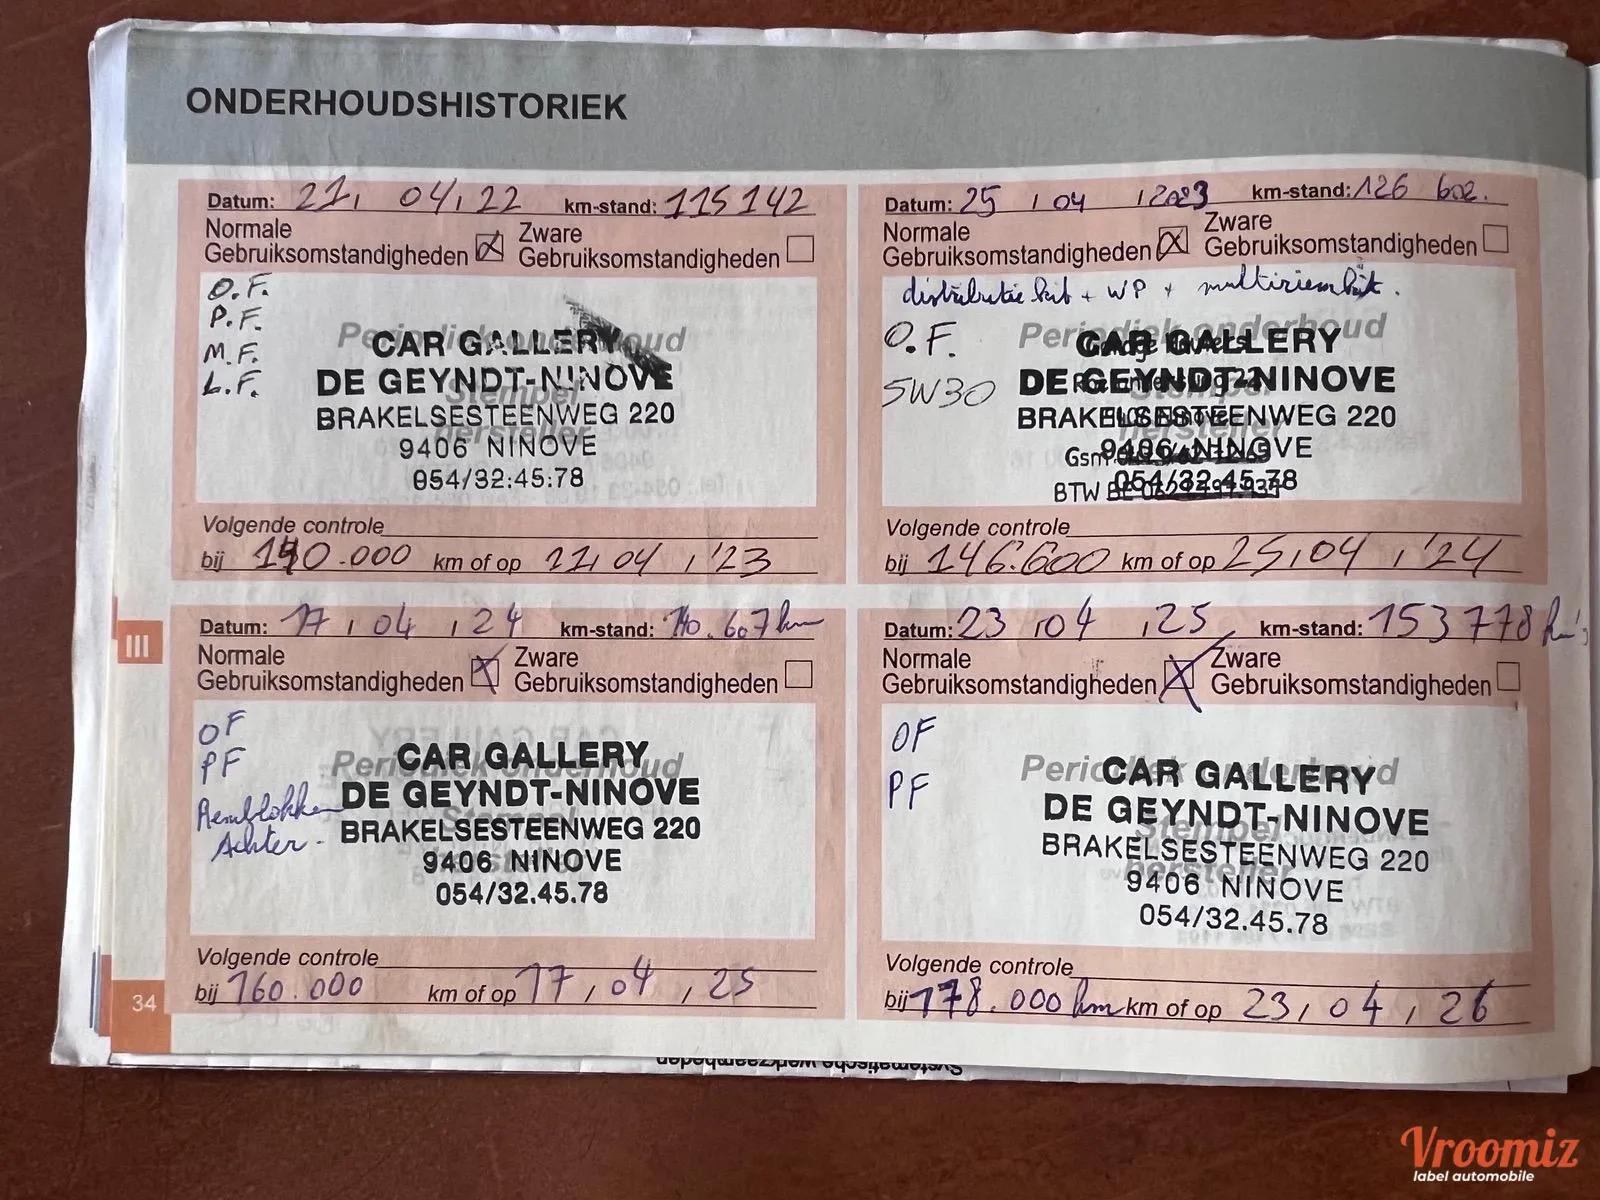 ONDERHOUDSHISTORIEK
Datum: 21, 04, 22 km-stand: 115142
Normale Gebruiksomstandigheden Zware Gebruiksomstandigheden
O.F.
P.F.
M.F.
L.F.
Periodiek onderhoud
Stempel
hersteller
CAR GALLERY
DE GEYNDT-NINOVE
BRAKELSESTEENWEG 220
9406 NINOVE
054/32:45:78
Volgende controle
bij 140.000 km of op 21, 04, '23
Datum: 25, 04, 2023 km-stand: 126 602.
Normale Gebruiksomstandigheden Zware Gebruiksomstandigheden
distributie kit + WP + multiriemkit.
O.F.
5W30
Periodiek onderhoud
Stempel
hersteller
CAR GALLERY
DE GEYNDT-NINOVE
BRAKELSESTEENWEG 220
9406 NINOVE
Gsm
054/32.45.78
BTW BE
Volgende controle
bij 146.600 km of op 25, 04, '24
Datum: 17, 04, 24 km-stand: 140.607 km
Normale Gebruiksomstandigheden Zware Gebruiksomstandigheden
OF
PF
Remblokken
Achter.
Periodiek onderhoud
Stempel
hersteller
CAR GALLERY
DE GEYNDT-NINOVE
BRAKELSESTEENWEG 220
9406 NINOVE
054/32.45.78
Volgende controle
bij 160.000 km of op 17, 04, 25
Datum: 23, 04, 25 km-stand: 153 778 km's
Normale Gebruiksomstandigheden Zware Gebruiksomstandigheden
OF
PF
Periodiek onderhoud
Stempel
hersteller
CAR GALLERY
DE GEYNDT-NINOVE
BRAKELSESTEENWEG 220
9406 NINOVE
054/32.45.78
Volgende controle
bij 178.000 km km of op 23, 04, 26
III
34
Systematische werkzaamheden
Vroomiz
label automobile